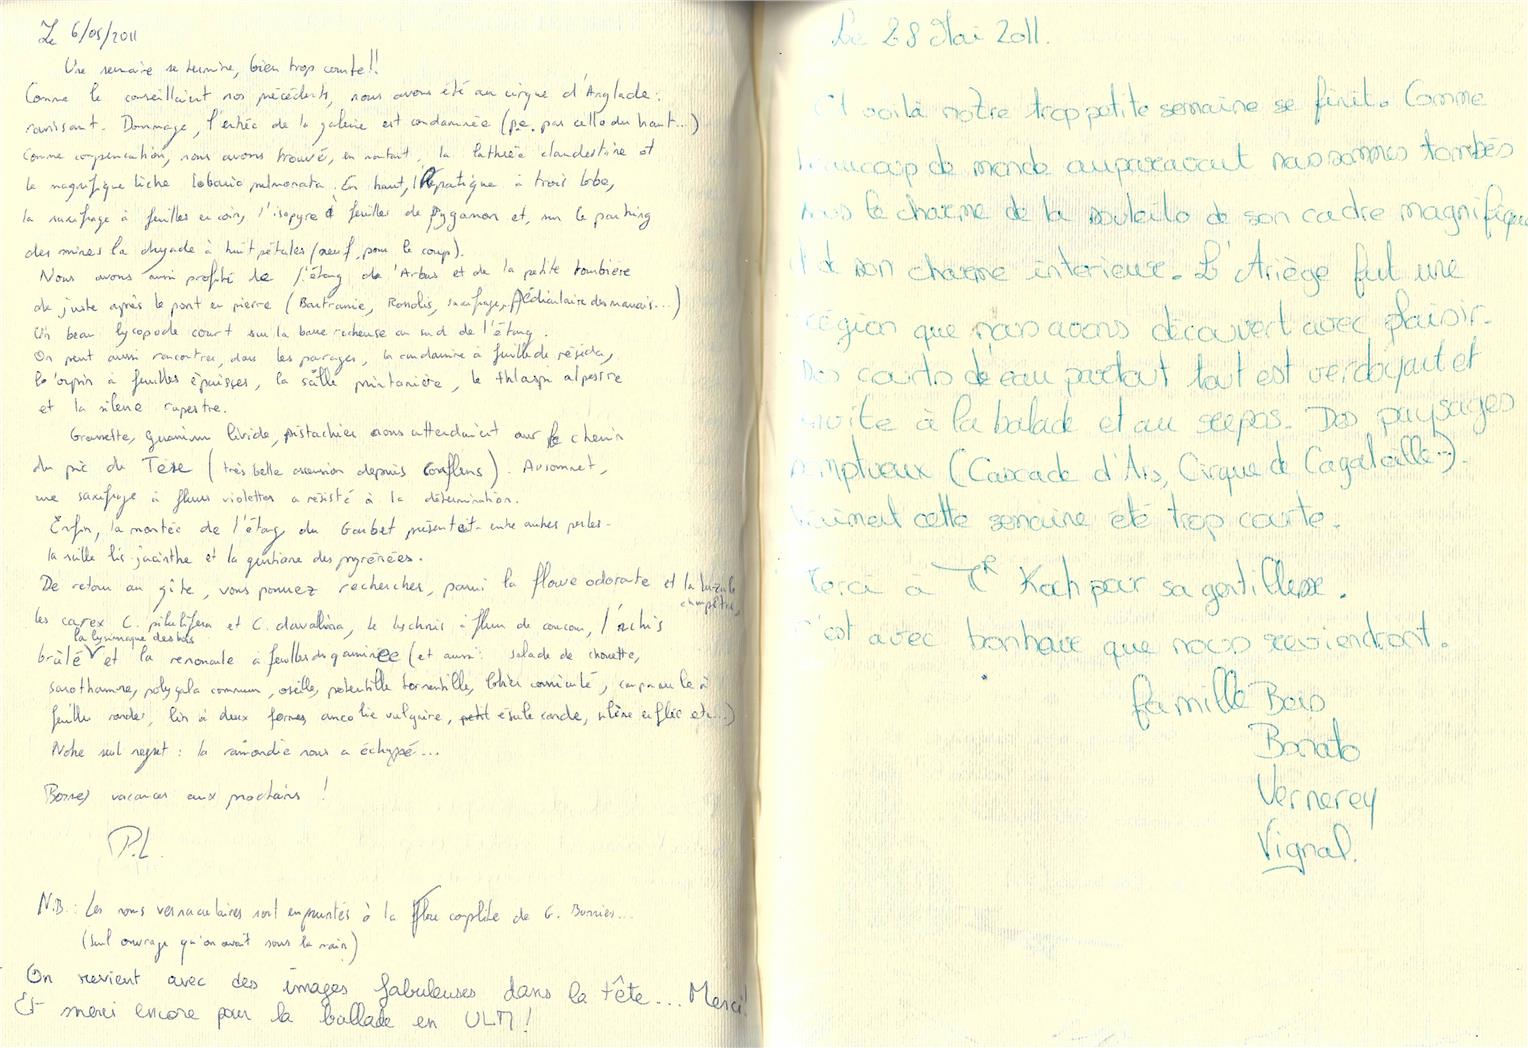 Le 6/05/2011
Une semaine se termine, bien trop courte!!
Comme le conseillaient nos précédents, nous avons été au cirque d'Anglade :
ravissant. Dommage, l'entrée de la galerie est condamnée (p.e. pas celle du haut...)
Comme compensation, nous avons trouvé, en montant, la lathrée clandestine et
le magnifique lichen lobaria pulmonata. En haut, l'hépatique à trois lobes,
la saxifrage à feuilles en coin, l'isopyre à feuilles de pygamon et, sur le parking
des mines la dryade à huit pétales (neuf, pour le coup).
Nous avons aussi profité de l'étang de l'Arbus et de la petite tourbière
de juste après le pont en pierre (Bartramie, Rossolis, saxifrage, Pédiculaire des marais...)
Un beau lycopode court sur la barre rocheuse au sud de l'étang.
On peut aussi rencontrer, dans les parages, la cardamine à feuille de réséda,
l'orpin à feuilles épaisses, la scille printanière, le thlaspi alpestre
et la silene rupestre.
Grassette, geranium livide, pistachier nous attendaient sur le chemin
du pic de Tèse (très belle ascension depuis Conflens).
une saxifrage à fleurs violettes a résisté à la détermination.
Enfin, la montée de l'étang du Garbet présentait - entre autres perles -
la scille lis jacinthe et la gentiane des pyrénées.
De retour au gîte, vous pouvez rechercher, parmi la flouve odorante et la luzule
champêtre,
les carex C. pilulifera et C. davalliana, le lychnis à fleur de coucou, l'orchis
la lysimaque des bois
brûlé et la renoncule à feuilles de graminée (et aussi : salade de chouette,
sarothamne, polygala commun, oseille, potentille tormentille, lotier corniculé, campanule à
feuilles rondes, lin à deux formes, ancolie vulgaire, petit ésule ronde, silène enflée etc...)
Notre seul regret : la ramondie nous a échappé...
Bonnes vacances aux prochains !
P.L.
N.B. : Les noms vernaculaires sont empruntés à la flore complète de G. Bonnier...
(seul ouvrage qu'on avait sous la main)
On revient avec des images fabuleuses dans la tête... Merci!
Et merci encore pour la ballade en ULM !
Le 28 Mai 2011.
Et voilà notre trop petite semaine se finit. Comme
beaucoup de monde auparavant nous sommes tombés
sous le charme de la souleilo de son cadre magnifique
et de son charme interieur. L'Ariège fut une
région que nous avons découvert avec plaisir.
Des courts d'eau partout tout est verdoyant et
invite à la balade et au repos. Des paysages
somptueux (Cascade d'Ars, Cirque de Cagateille...).
Vraiment cette semaine été trop courte.
Merci à Mr Koch pour sa gentillesse.
C'est avec bonheur que nous reviendront.
famille Bois
Bonato
Vernerey
Vignal.